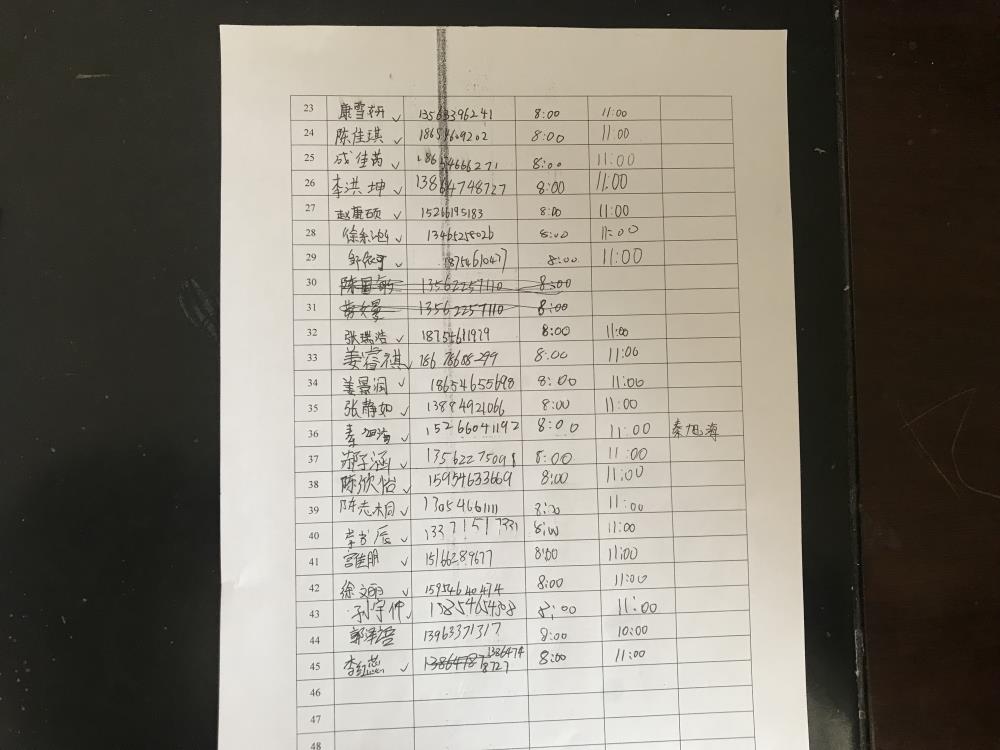 23 康雪 13563396241 8:00 11:00
24 陈佳琪 18654609202 8:00 11:00
25 成佳芮 18654666271 8:00 11:00
26 李洪坤 13864748727 8:00 11:00
27 赵康硕 15266195183 8:00 11:00
28 8:00 11:00
29 邹依可 8:00 11:00
30 13562257110 8:00
31 13562257110 8:00
32 张瑞浩 8:00 11:00
33 姜睿祺 18678608299 8:00 11:00
34 姜景润 18654655698 8:00 11:00
35 张静如 13884921066 8:00 11:00
36 秦旭海 15266041192 8:00 11:00 秦旭海
37 子涵 13562275098 8:00 11:00
38 陈欣怡 15954633669 8:00 11:00
39 陈志桐 13054661111 8:00 11:00
40 13371517331 8:00 11:00
41 宫佳朋 15166289677 8:00 11:00
42 徐文丽 15954640474 8:00 11:00
43 孙宇仲 8:00 11:00
44 郭泽 13963371317 8:00 10:00
45 李红蕊 1386474 8727 8:00 11:00
46
47
48